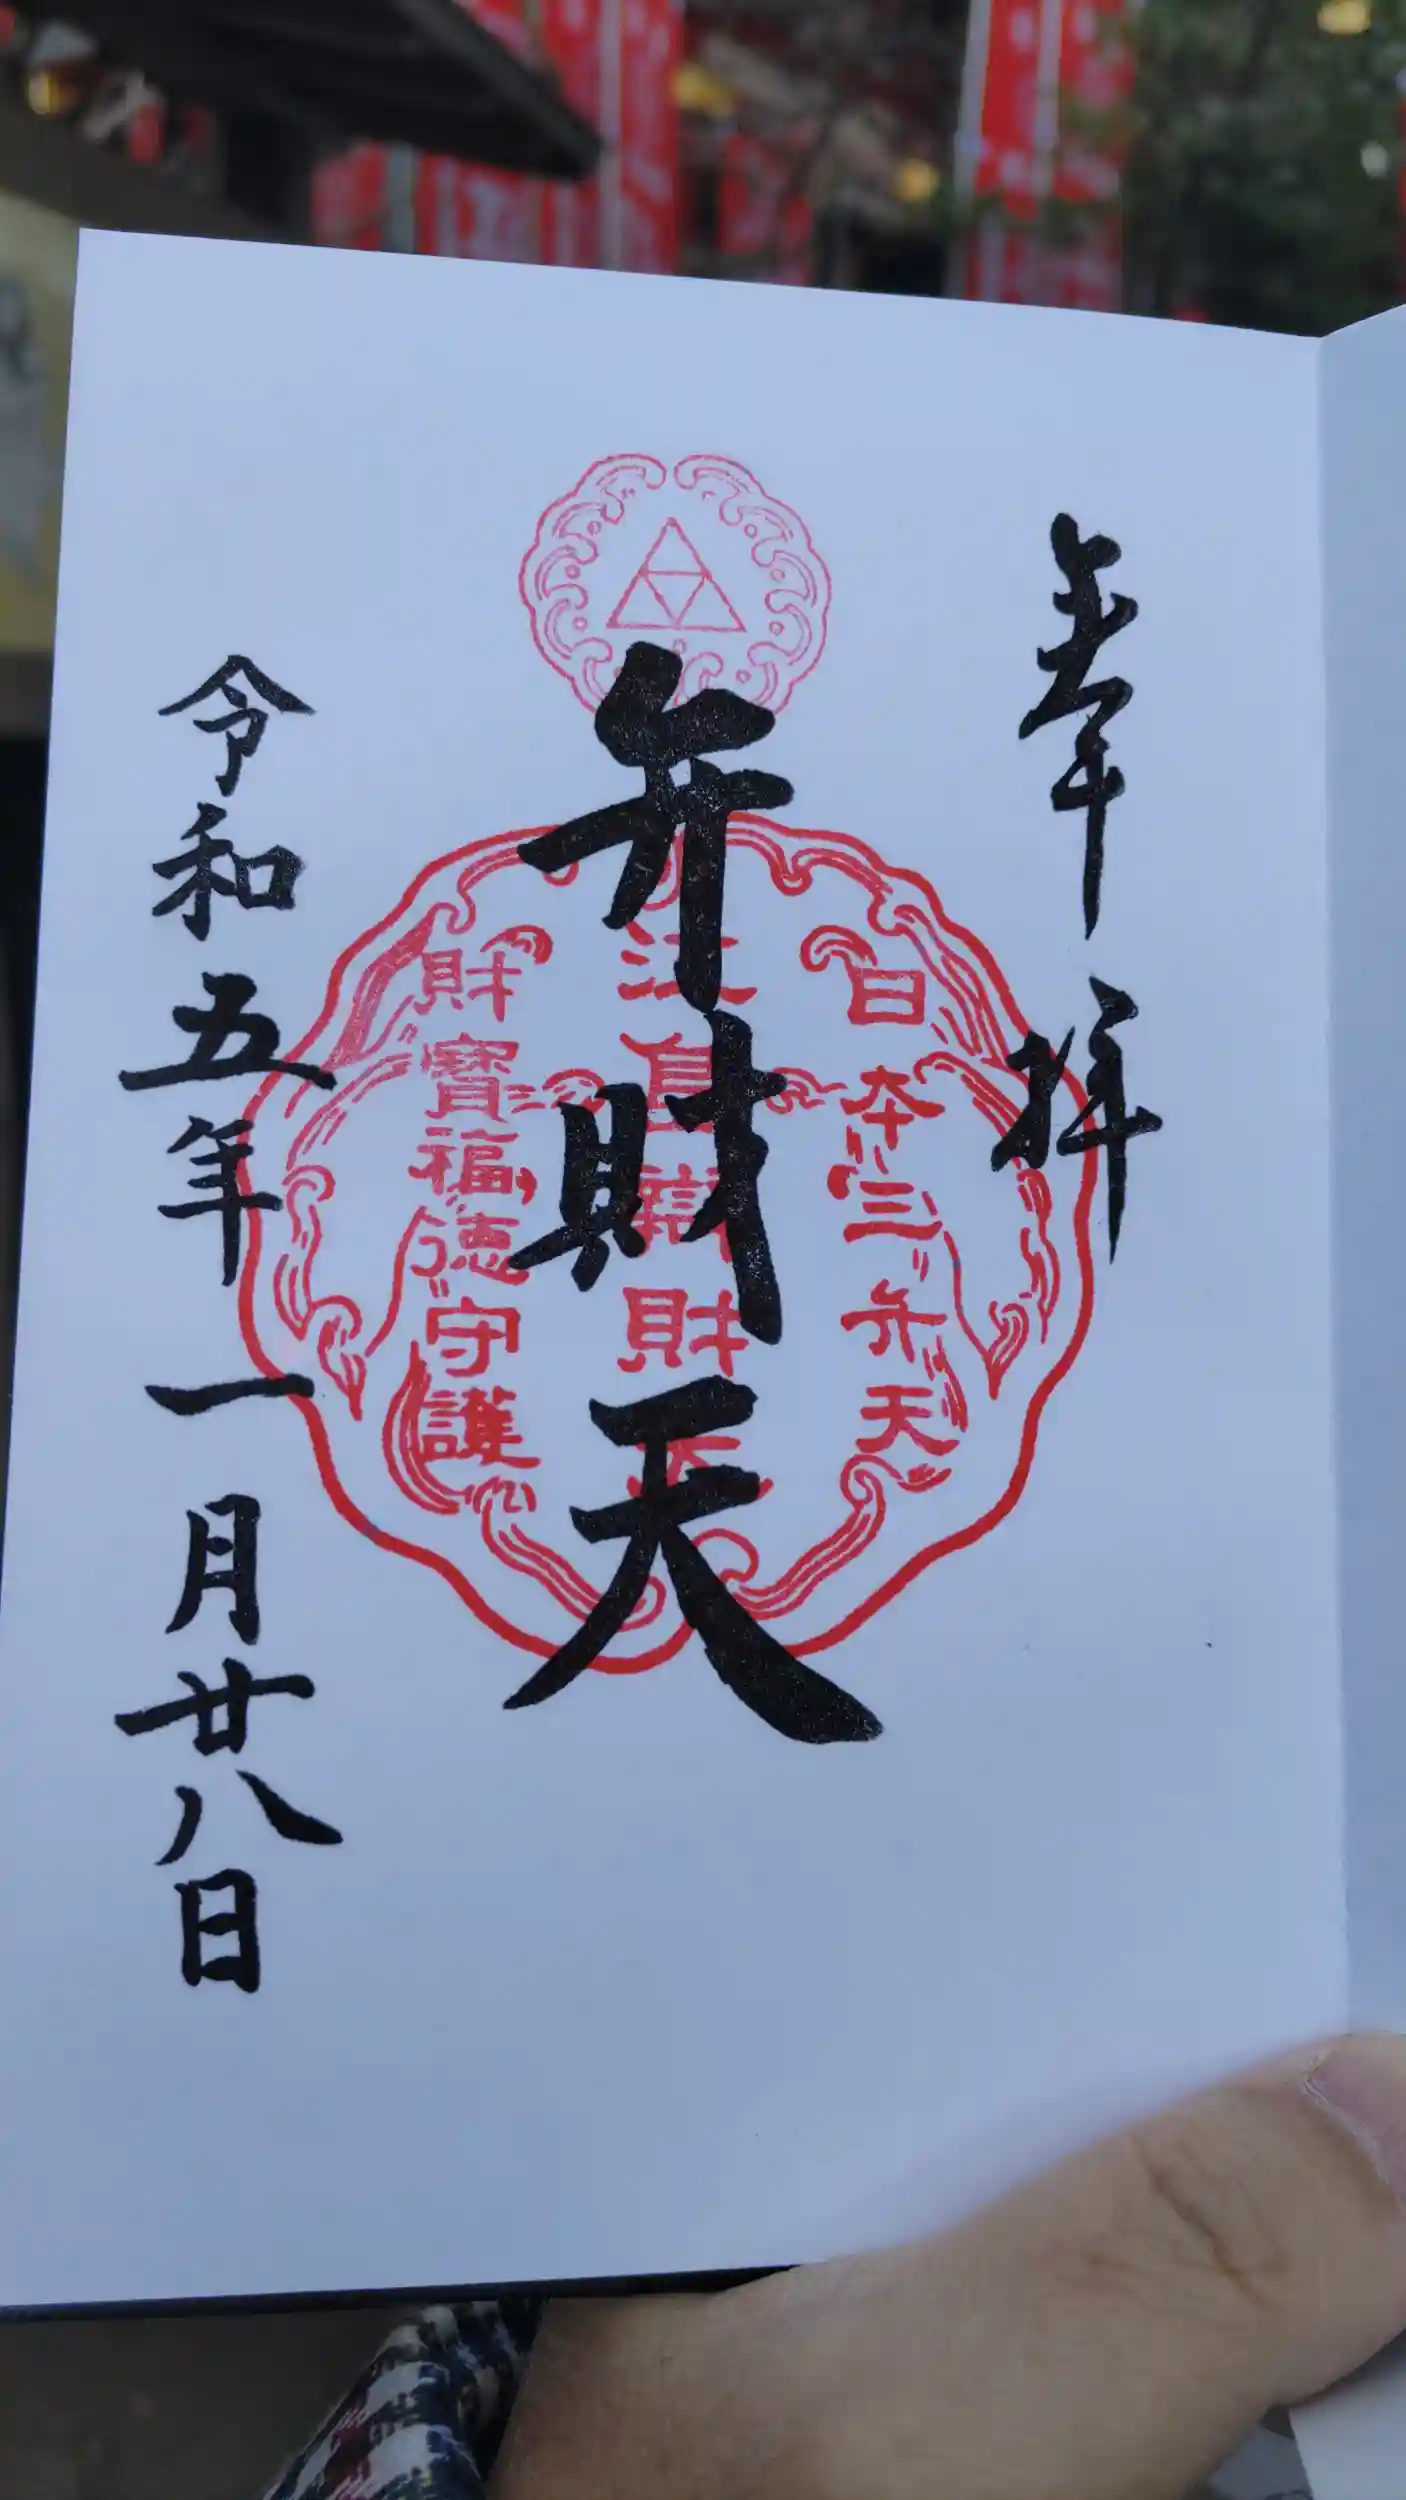 奉拝
日本三弁天
弁財天
江島辯財天
財寶福徳守護
令和五年一月廿八日